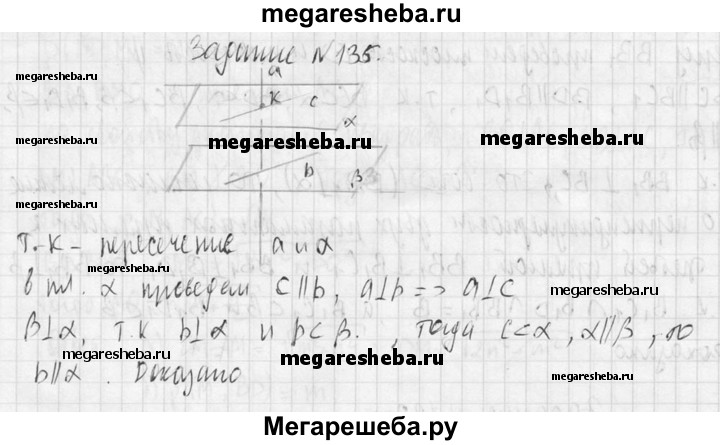 megaresheba.ru
Задание №135.
a
megaresheba.ru
megaresheba.ru
K c
α
megaresheba.ru
megaresheba.ru
b β
megaresheba.ru
Т.К - пересечение a и α
megaresheba.ru
в пл. α проведем c||b, a⊥b => a⊥c
β⊥α, т.к b⊥α и b⊂β. , тогда c⊂α, α||β, то
megaresheba.ru
megaresheba.ru
b||α. Доказано
megaresheba.ru
Мегарешеба.ру